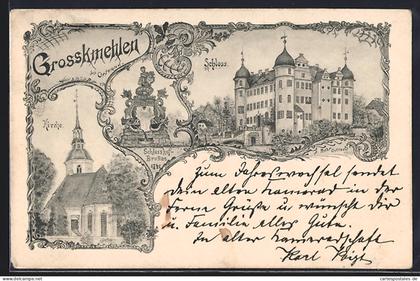 Grosskmehlen
bei Ortrand
Schloss.
Kirche.
Schlosshof-
Brunnen
Zum Jahreswechsel sendet
dein alter Kamerad in der
Ferne Grüße u. wünscht dir
u. Familie alles Gute.
In alter Kameradschaft
Karl